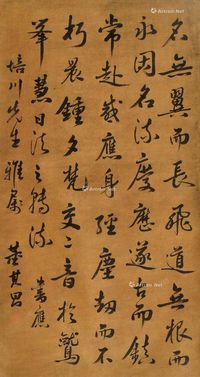 名無翼而長飛道無根而
永固名流慶歷遂古而鎮
常赴感應身經塵劫而不
朽晨鐘夕梵交二音於鷲
峯慧日法之轉流
培川先生雅屬
董其昌